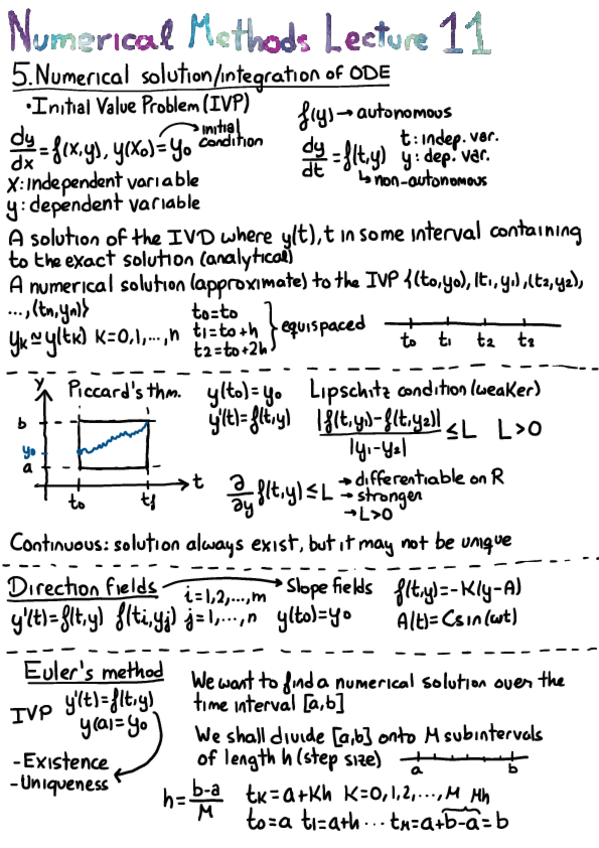 Numerical Methods Lecture 11
5. Numerical solution/integration of ODE
•Initial Value Problem (IVP)
dy/dx = f(x,y), y(x₀)=y₀ → initial condition
x: independent variable
y: dependent variable
f(y) → autonomous
dy/dt = f(t,y)
t: indep. var.
y: dep. var.
↳ non-autonomous
A solution of the IVD where y(t), t in some interval containing
to the exact solution (analytical)
A numerical solution (approximate) to the IVP {(t₀,y₀), (t₁,y₁), (t₂,y₂),
..., (tₙ,yₙ)}
yₖ ≃ y(tₖ) K=0,1,...,n
t₀=t₀
t₁=t₀+h
t₂=t₀+2h
} equispaced
t₀ t₁ t₂ t₃
Piccard's thm.
y
b
y₀
a
t₀ t𝑓
t
y(t₀)=y₀
y'(t)=f(t,y)
Lipschitz condition (weaker)
|f(t,y₁)-f(t,y₂)| / |y₁-y₂| ≤ L L>0
∂/∂y f(t,y) ≤ L
→ differentiable on R
→ stronger
→ L>0
Continuous: solution always exist, but it may not be unique
Direction fields → Slope fields
y'(t)=f(t,y) f(tᵢ,yⱼ)
i=1,2,...,m
j=1,...,n
y(t₀)=y₀
f(t,y)=-K(y-A)
A(t)=Csin(ωt)
Euler's method
IVP
y'(t)=f(t,y)
y(a)=y₀
-Existence
-Uniqueness
We want to find a numerical solution over the
time interval [a,b]
We shall divide [a,b] onto M subintervals
of length h (step size)
a b
h = b-a/M
tₖ=a+Kh K=0,1,2,...,M
Mh
t₀=a t₁=a+h ... tₘ=a+b-a=b